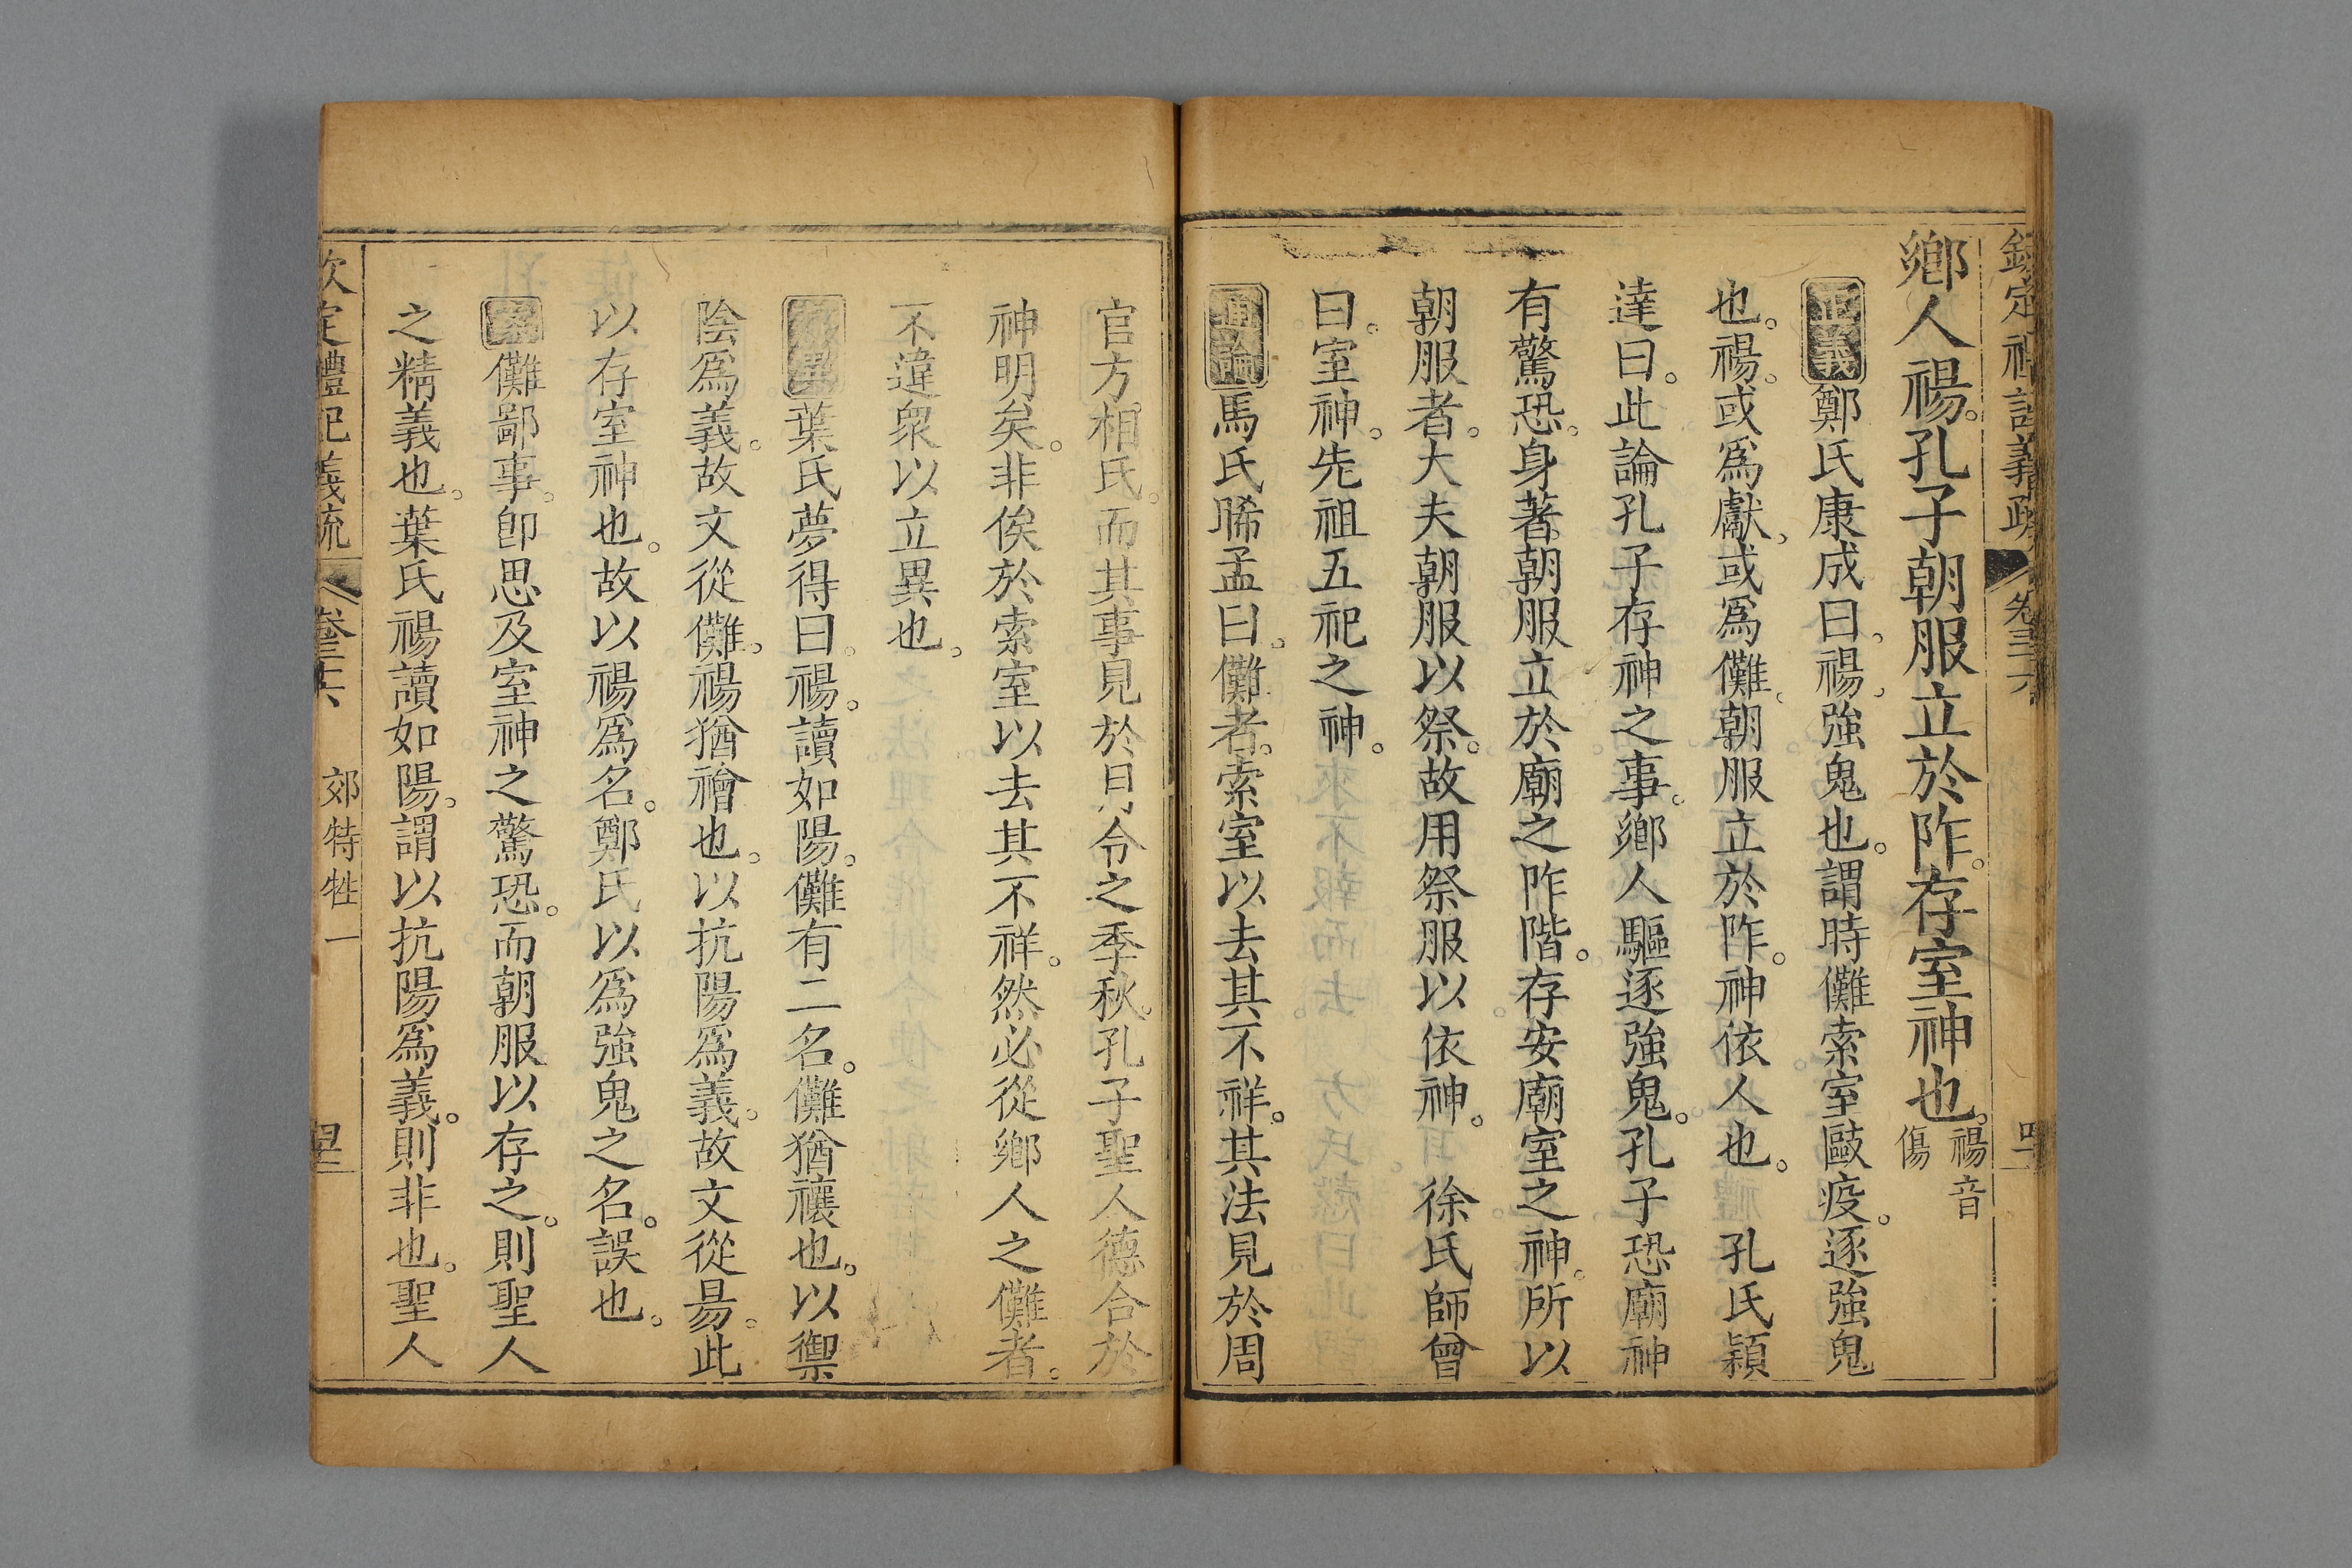 欽定禮記義疏 卷三十六
鄉人禓。孔子朝服立於阼。存室神也。禓音傷
正義鄭氏康成曰。禓。強鬼也。謂時儺索室毆疫。逐強鬼
也。禓。或爲獻。或爲儺。朝服立於阼。神依人也。 孔氏穎
達曰。此論孔子存神之事。鄉人驅逐強鬼。孔子恐廟神
有驚恐。身著朝服立於廟之阼階。存安廟室之神。所以
朝服者。大夫朝服以祭。故用祭服以依神。 徐氏師曾
曰。室神。先祖五祀之神。
通論馬氏睎孟曰。儺者。索室以去其不祥。其法見於周
官方相氏。而其事見於月令之季秋。孔子聖人德合於
神明矣。非俟於索室以去其不祥。然必從鄉人之儺者。
不違衆以立異也。
存異葉氏夢得曰。禓。讀如陽。儺有二名。儺猶禳也。以禦
陰爲義。故文從儺。禓猶禬也。以抗陽爲義。故文從昜。此
以存室神也。故以禓爲名。鄭氏以爲強鬼之名。誤也。
案儺鄙事。卽思及室神之驚恐。而朝服以存之。則聖人
之精義也。葉氏禓讀如陽。謂以抗陽爲義。則非也。聖人
欽定禮記義疏 卷三十六 郊特牲一